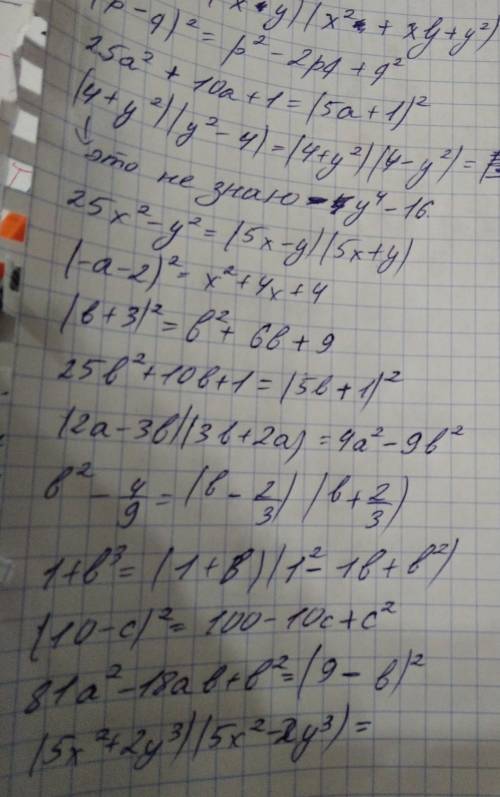 (x-y)(x² + xy+y²)
(p-q)² = p² - 2pq + q²
25a² + 10a+1 = (5a+1)²
(4+y²)(y²-4) = (4+y²)(4-y²) =
это не знаю y⁴-16
25x²-y² = (5x-y)(5x+y)
(-a-2)² = x²+4x+4
(b+3)² = b²+ 6b+9
25b²+10b+1 = (5b+1)²
(2a-3b)(3b+2a) = 4a²-9b²
b² - 4/9 = (b - 2/3) (b + 2/3)
1+b³ = (1+b)(1²-1b+b²)
(10-c)² = 100-10c+c²
81a²-18ab+b² = (9-b)²
(5x²+2y³)(5x²-2y³) =